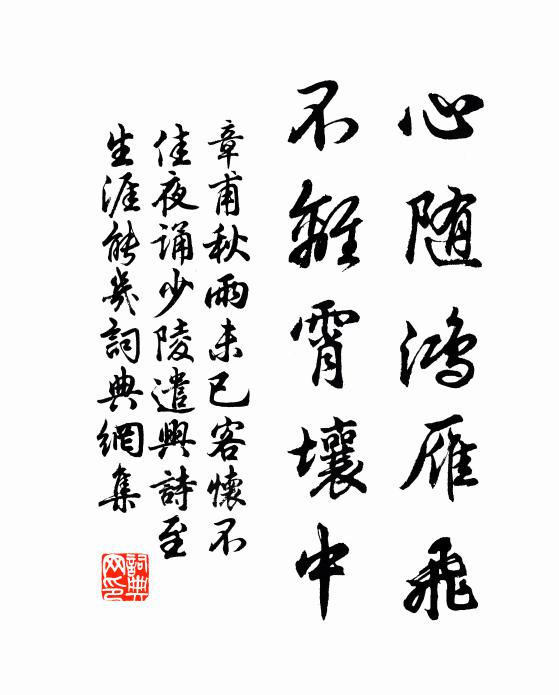 心随鴻雁飛
不離霄壤中
章甫秋雨未已客懷不
佳夜誦少陵遣興詩至
生涯能幾詞典網集
詞典
网印